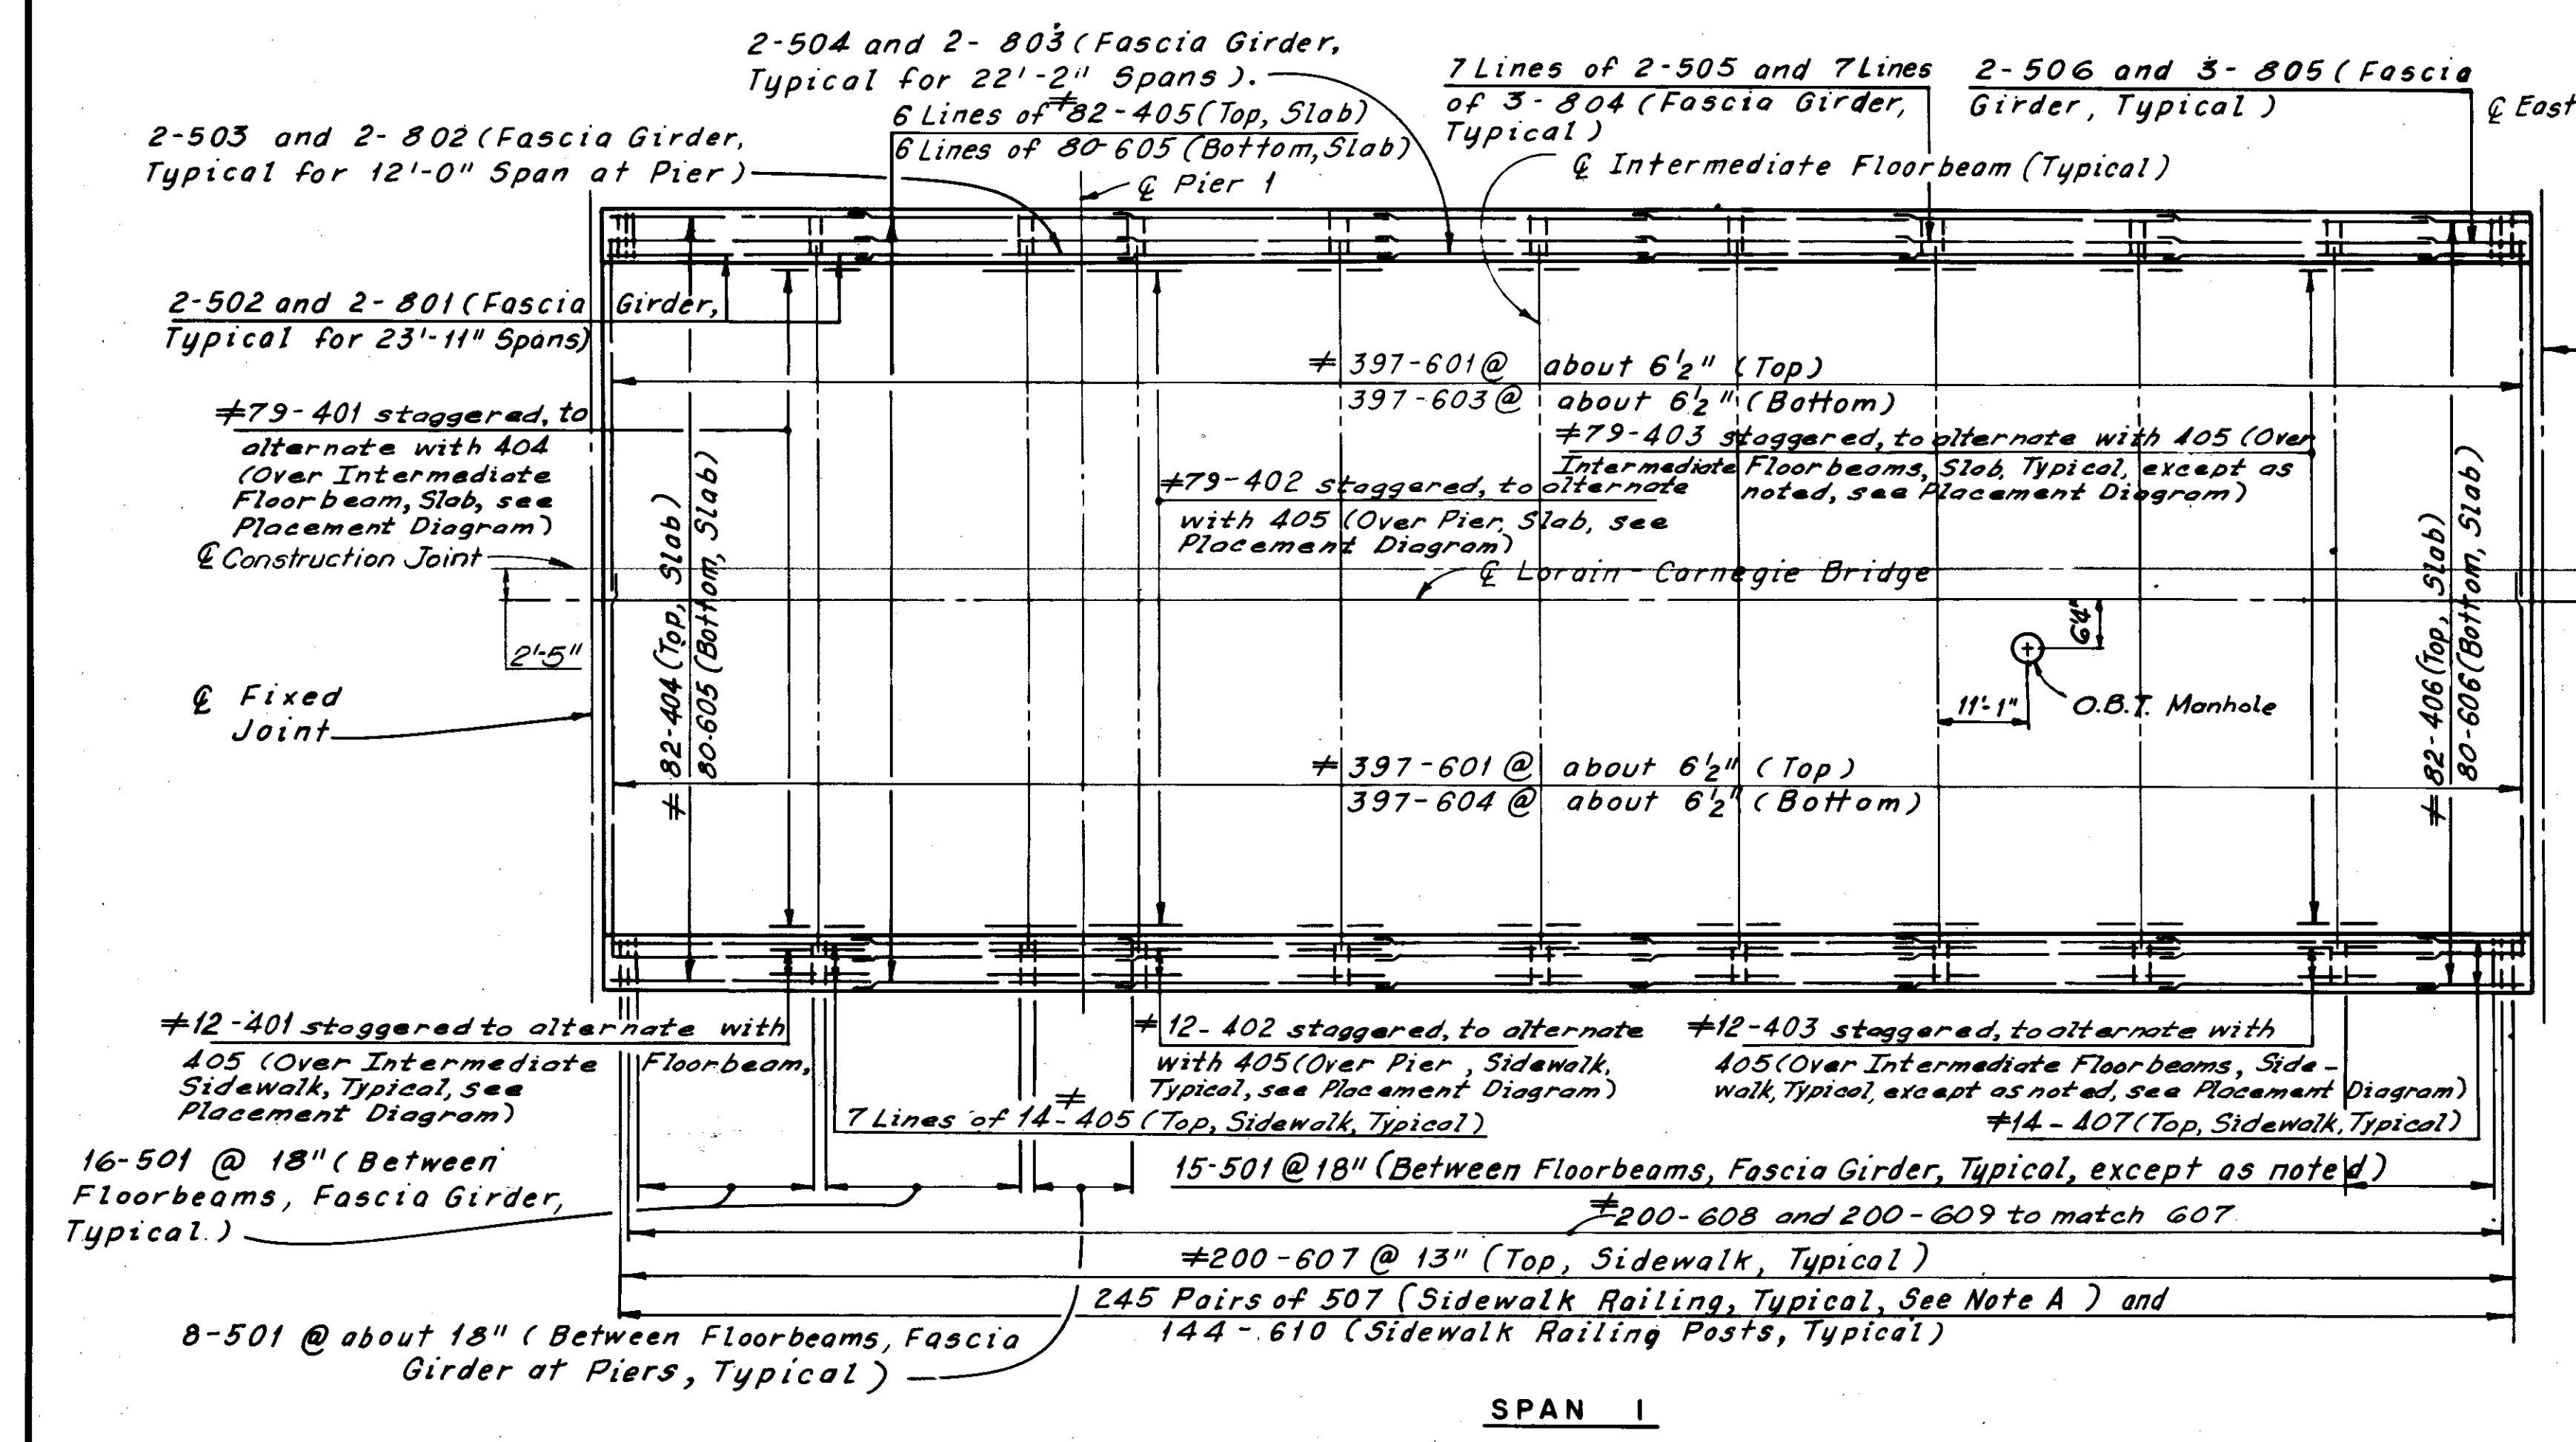 2-504 and 2-803 (Fascia Girder,
Typical for 22'-2" Spans).
7 Lines of 2-505 and 7 Lines
of 3-804 (Fascia Girder,
Typical)
2-506 and 3-805 (Fascia
Girder, Typical)
℄ East
6 Lines of ≠82-405 (Top, Slab)
6 Lines of 80-605 (Bottom, Slab)
2-503 and 2-802 (Fascia Girder,
Typical for 12'-0" Span at Pier)
℄ Pier 1
℄ Intermediate Floorbeam (Typical)
2-502 and 2-801 (Fascia Girder,
Typical for 23'-11" Spans)
≠ 397-601 @ about 6½" (Top)
397-603 @ about 6½" (Bottom)
≠79-401 staggered, to
alternate with 404
(Over Intermediate
Floorbeam, Slab, see
Placement Diagram)
≠79-403 staggered, to alternate with 405 (Over
Intermediate Floorbeams, Slab, Typical, except as
noted, see Placement Diagram)
≠79-402 staggered, to alternate
with 405 (Over Pier, Slab, see
Placement Diagram)
℄ Construction Joint
℄ Lorain-Carnegie Bridge
2'-5"
≠ 82-404 (Top, Slab)
80-605 (Bottom, Slab)
6'4"
11'-1"
O.B.T. Manhole
≠ 82-406 (Top, Slab)
80-606 (Bottom, Slab)
℄ Fixed
Joint
≠ 397-601 @ about 6½" (Top)
397-604 @ about 6½" (Bottom)
≠12-401 staggered to alternate with
405 (Over Intermediate Floorbeam,
Sidewalk, Typical, see
Placement Diagram)
≠12-402 staggered, to alternate
with 405 (Over Pier, Sidewalk,
Typical, see Placement Diagram)
≠12-403 staggered, to alternate with
405 (Over Intermediate Floorbeams, Side-
walk, Typical, except as noted, see Placement Diagram)
7 Lines of 14-≠405 (Top, Sidewalk, Typical)
≠14-407 (Top, Sidewalk, Typical)
16-501 @ 18" (Between
Floorbeams, Fascia Girder,
Typical.)
15-501 @ 18" (Between Floorbeams, Fascia Girder, Typical, except as noted)
≠200-608 and 200-609 to match 607
≠200-607 @ 13" (Top, Sidewalk, Typical)
245 Pairs of 507 (Sidewalk Railing, Typical, See Note A) and
144-610 (Sidewalk Railing Posts, Typical)
8-501 @ about 18" (Between Floorbeams, Fascia
Girder at Piers, Typical)
SPAN 1